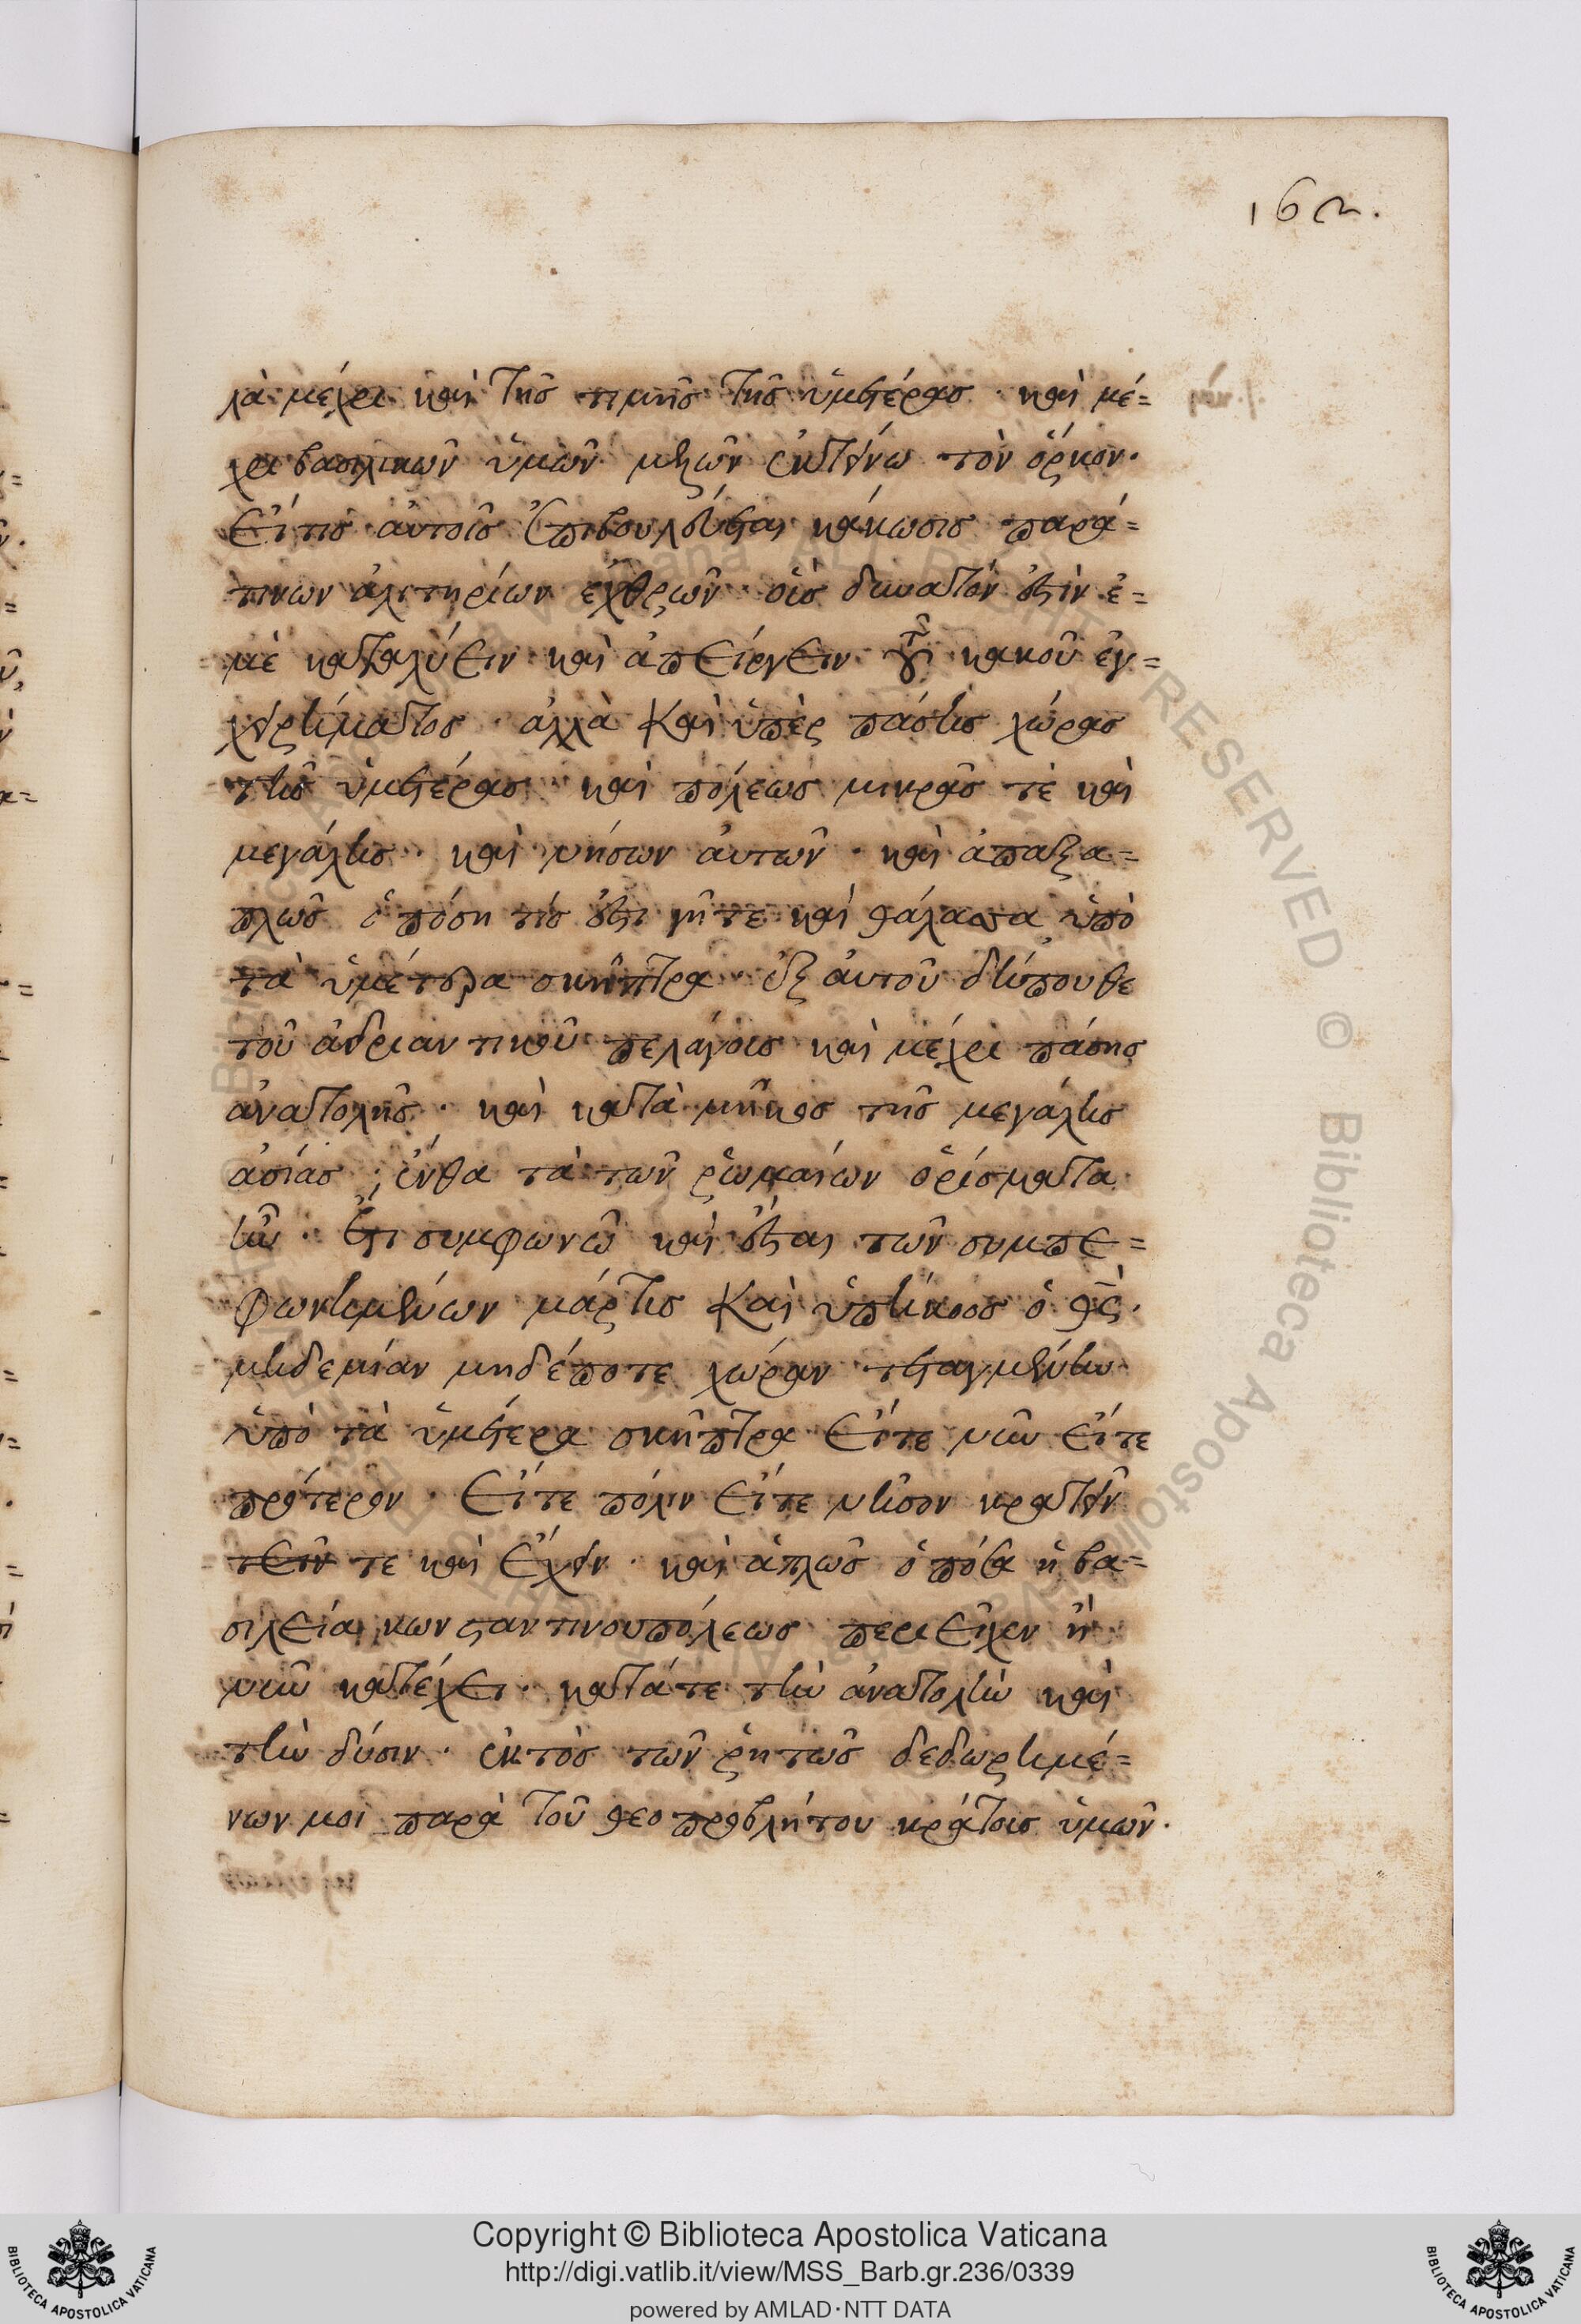 162.
λὰ μέχρι καὶ τῆς τιμῆς τῆς ὑμετέρας· καὶ μέ=
χρι βασιλικῶν ὑμῶν μερῶν ἐκτείνω τὸν ὅρκον·
Εἴ τις αὐτοῖς ἐπιβουλεύεται κάκωσις παρά=
τινων ἀλιτηρίων ἐχθρῶν· οἷς δυνατόν ἐστιν ἐ=
μὲ καταλύειν καὶ ἀπείργειν τοῦ κακοῦ ἐγ=
χειρήματος· ἀλλὰ καὶ ὑπὲρ πάσης χώρας
τῆς ὑμετέρας· καὶ πόλεως μικρᾶς τὲ καὶ
μεγάλης· καὶ νήσων αὐτῶν· καὶ ἁπαξα=
πλῶς ὁπόση τίς ἐστι γῆ τε καὶ θάλασσα ὑπὸ
τὰ ὑμέτερα σκῆπτρα· ἐξ αὐτοῦ δήπουθε
τοῦ ἀδριαντικοῦ πελάγους καὶ μέχρι πάσης
ἀνατολῆς· καὶ κατὰ μῆκος τῆς μεγάλης
ἀσίας· ἔνθα τὰ τῶν ῥωμαίων ὁρίσματα
ἦν· Ἔτι συμφωνῶ καὶ ἔσται τῶν συμπε=
φωνημένων μάρτις καὶ ὑπήκοος ὁ θς·
μηδεμίαν μηδέποτε χώραν τεταγμένην
ὑπὸ τὰ ὑμέτερα σκῆπτρα Εἴτε νῦν εἴτε
πρότερον· Εἴτε πόλιν εἴτε νῆσον κρατεῖν
τεῖν τε καὶ ἔχειν· καὶ ἁπλῶς ὁπόσα ἡ βα=
σιλεία κωνσταντινουπόλεως περιεῖχεν ἢ
νῦν κατέχει· κατά τε τὴν ἀνατολὴν καὶ
τὴν δύσιν· ἐκτὸς τῶν ῥητῶς δεδωρημέ=
νων μοι παρὰ τοῦ θεοπροβλήτου κράτους ὑμῶν·
Copyright © Biblioteca Apostolica Vaticana
http://digi.vatlib.it/view/MSS_Barb.gr.236/0339
powered by AMLAD·NTT DATA